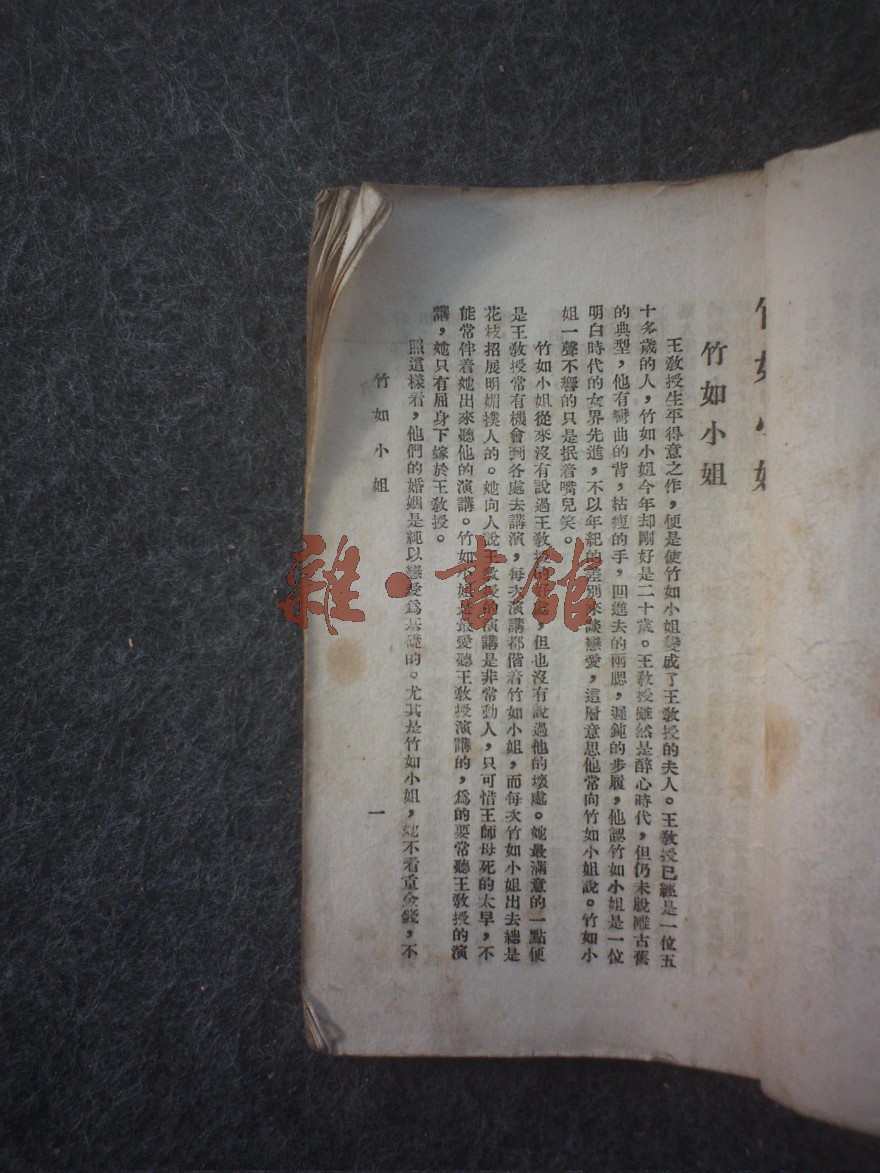 竹如小姐
竹如小姐
王敎授生平得意之作，便是使竹如小姐變成了王敎授的夫人。王敎授已經是一位五
十多歲的人，竹如小姐今年却剛好是二十歲。王敎授雖然是醉心時代，但仍未脫離古舊
的典型，他有彎曲的背，枯瘦的手，凹進去的兩腮，遲鈍的步履，他認竹如小姐是一位
明白時代的女界先進，不以年紀的差別來談戀愛，這層意思他常向竹如小姐說。竹如小
姐一聲不響的只是抿着嘴兒笑。
竹如小姐從來沒有說過王敎授的好處，但也沒有說過他的壞處。她最滿意的一點便
是王敎授常有機會到各處去講演，每次演講都偕着竹如小姐，而每次竹如小姐出去總是
花枝招展明媚撲人的。她向人說王敎授的演講是非常動人，只可惜王師母死的太早，不
能常伴着她出來聽他的演講。竹如小姐是最愛聽王敎授演講的，爲的要常聽王敎授的演
講，她只有屈身下嫁於王敎授。
照這樣看，他們的婚姻是純以戀愛爲基礎的。尤其是竹如小姐，她不看重金錢，不
竹如小姐
一
雜·書館